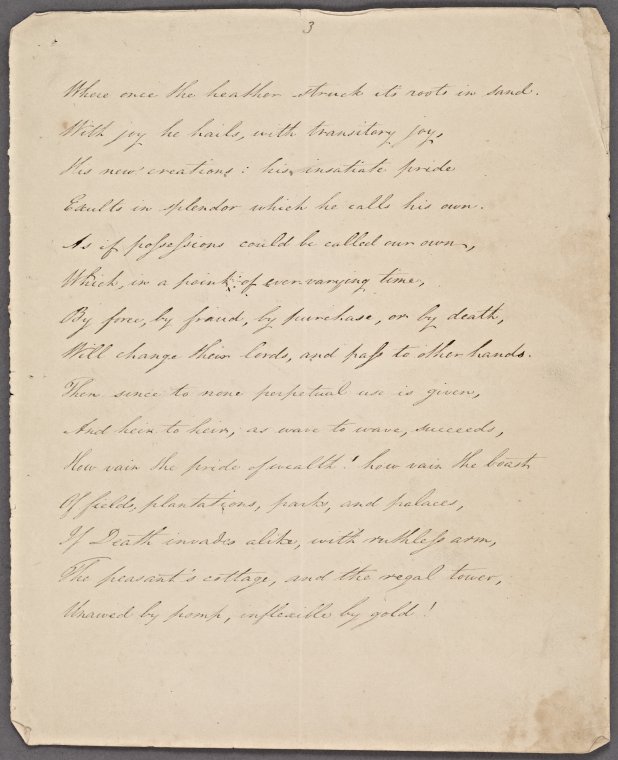 3
Where once the heather struck its roots in sand.
With joy he hails, with transitory joy,
His new creations: his insatiate pride
Exults in splendor which he calls his own.
As if possessions could be called our own,
Which, in a point of ever varying time,
By force, by fraud, by purchase, or by death,
Will change their lords, and pass to other hands.
Then since to none perpetual use is given,
And heir to heir, as wave to wave, succeeds,
How vain the pride of wealth! how vain the boast
Of fields, plantations, parks, and palaces,
If Death invades alike, with ruthless arm,
The peasant's cottage, and the regal tower,
Unawed by pomp, inflexible by gold!